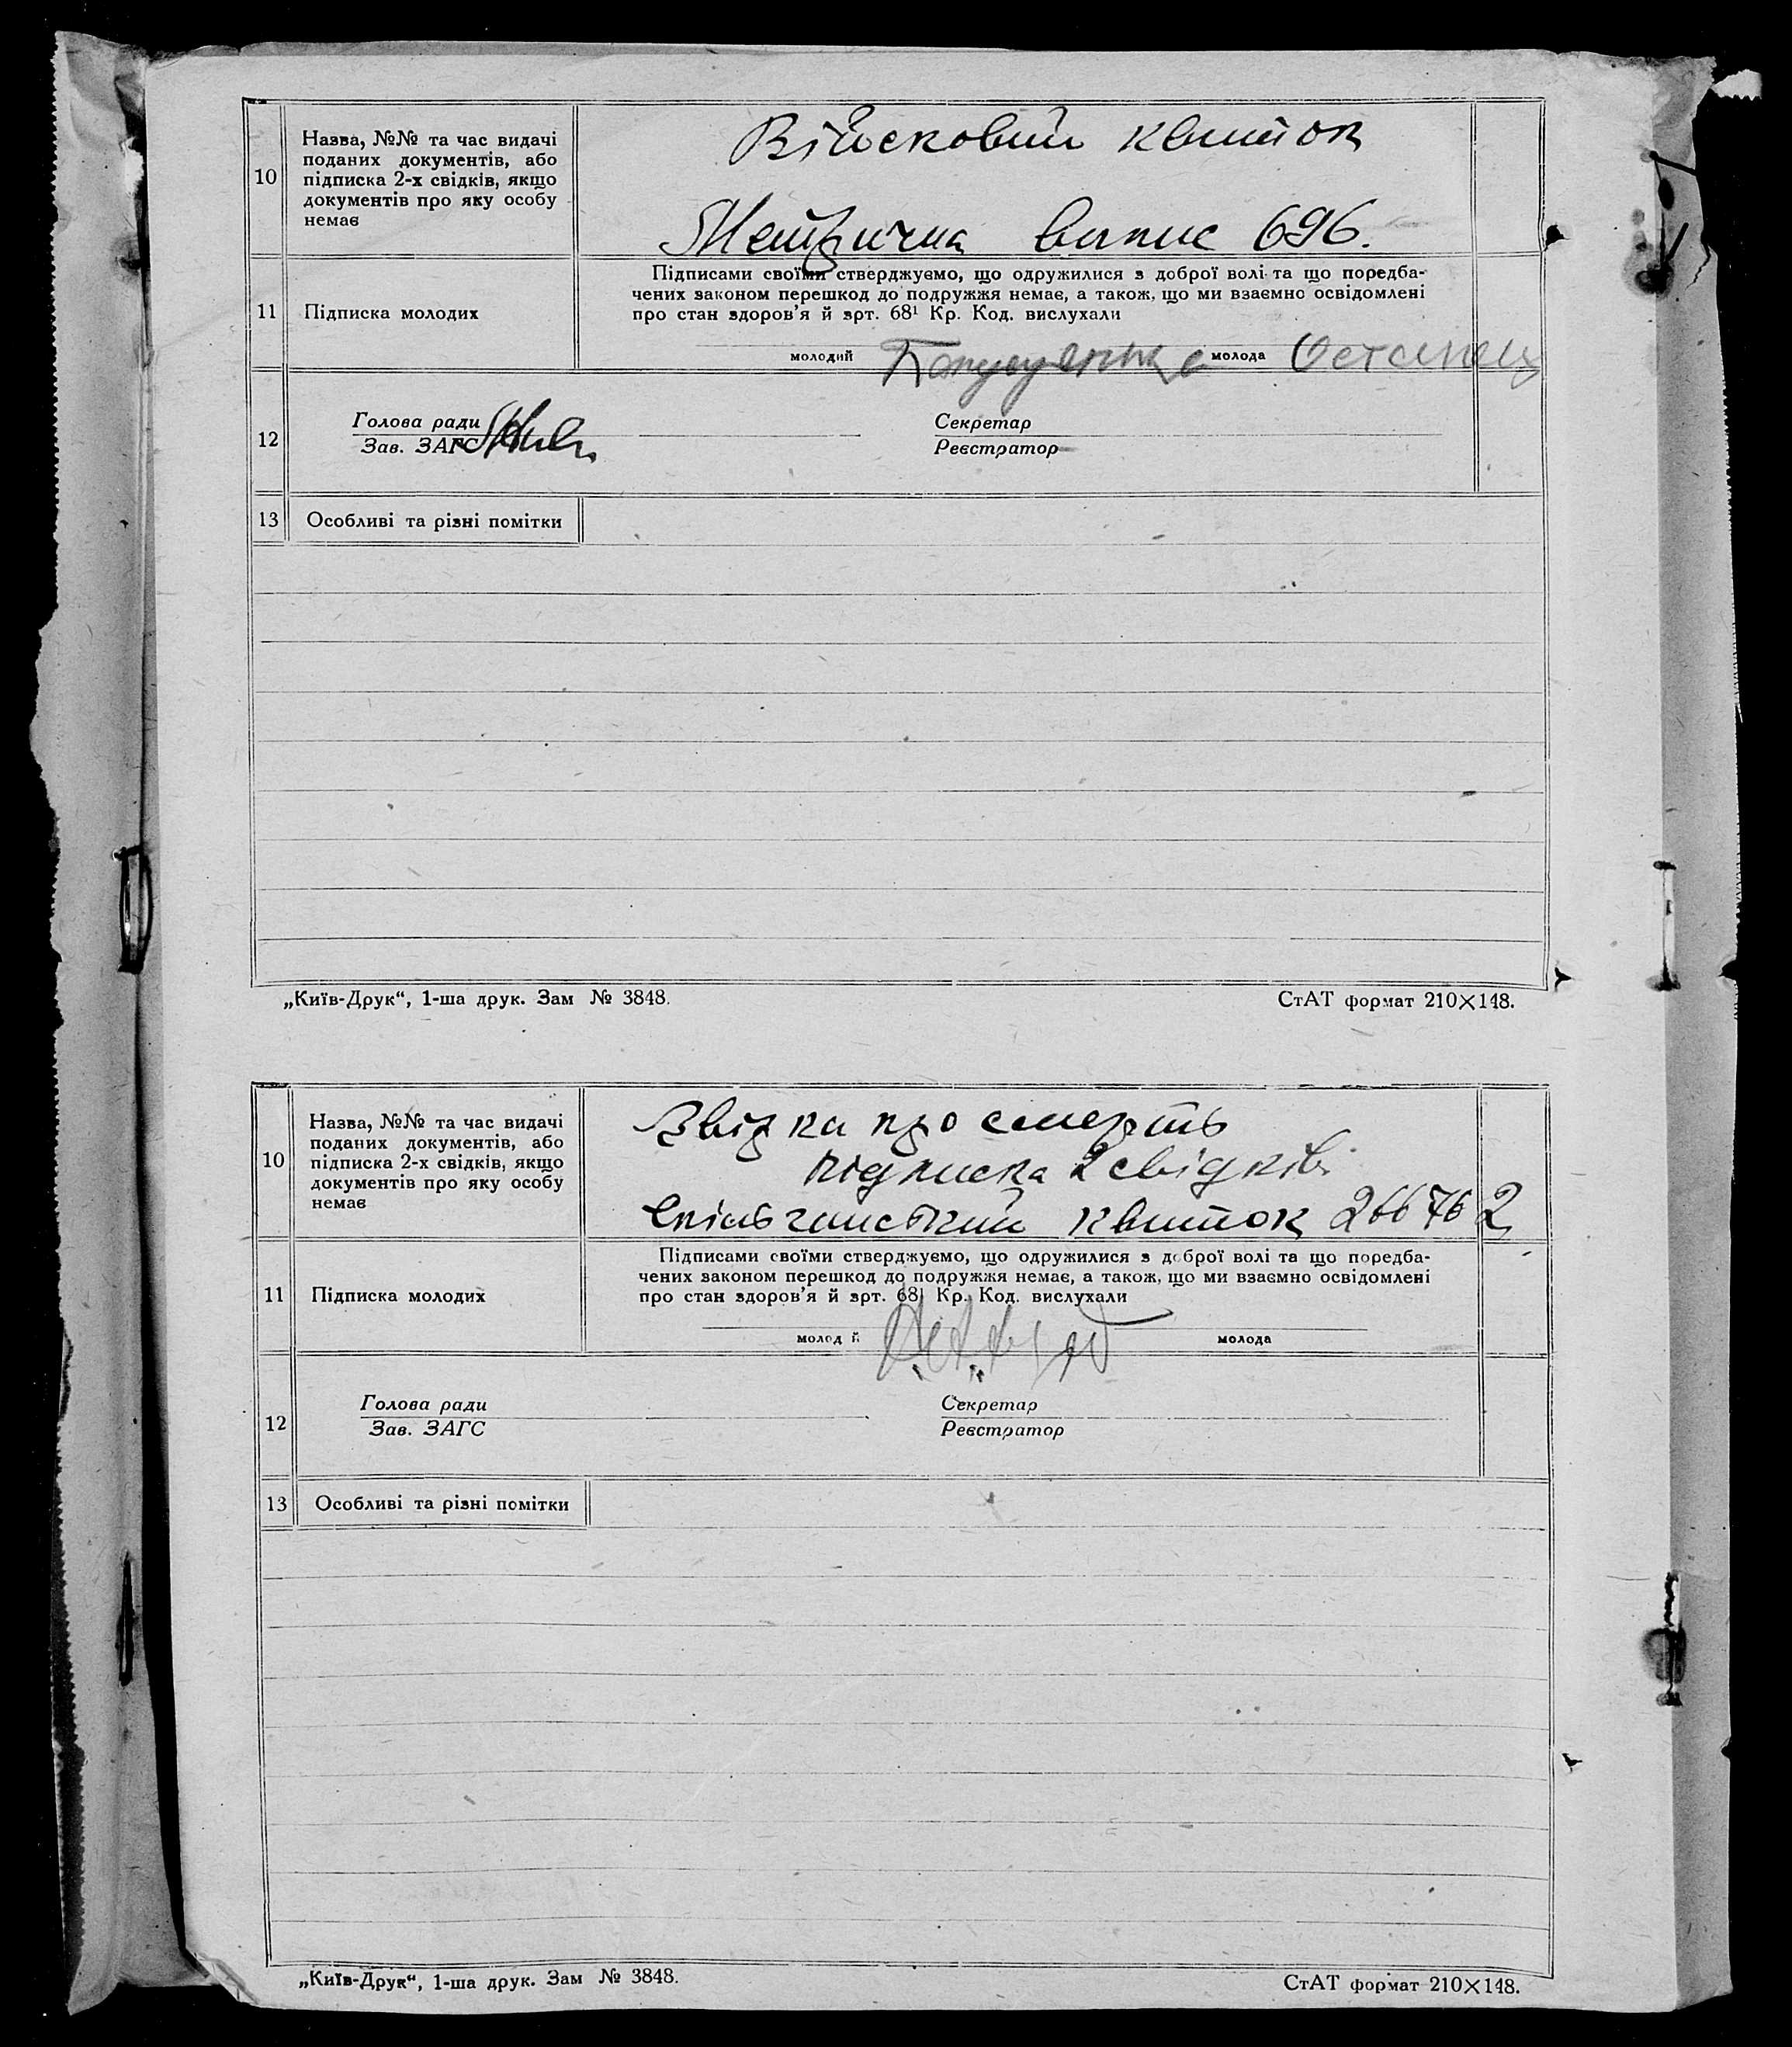 10
Назва, №№ та час видачі
поданих документів, або
підписка 2-х свідків, якщо
документів про яку особу
немає
Військовий квиток
Метрична випис 696.
11
Підписка молодих
Підписами своїми стверджуємо, що одружилися з доброї волі та що поредба-
чених законом перешкод до подружжя немає, а також, що ми взаємно освідомлені
про стан здоров'я й зрт. 68¹ Кр. Код. вислухали
молодий молода Останец
12
Голова ради
Зав. ЗАГС
Секретар
Реєстратор
13
Особливі та різні помітки
„Київ-Друк“, 1-ша друк. Зам № 3848.
СтАТ формат 210×148.
10
Назва, №№ та час видачі
поданих документів, або
підписка 2-х свідків, якщо
документів про яку особу
немає
Звідка про смерть
підписка 2 свідків
спільчанський квиток 266762
11
Підписка молодих
Підписами своїми стверджуємо, що одружилися з доброї волі та що поредба-
чених законом перешкод до подружжя немає, а також, що ми взаємно освідомлені
про стан здоров'я й зрт. 68¹ Кр. Код. вислухали
молод й молода
12
Голова ради
Зав. ЗАГС
Секретар
Реєстратор
13
Особливі та різні помітки
„Київ-Друк“, 1-ша друк. Зам № 3848.
СтАТ формат 210×148.